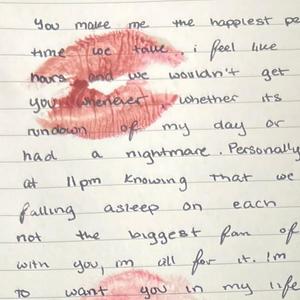 You make me the happiest pe
time we talk, i feel like
hours and we wouldn't get
you whenever, whether its
rundown of my day or
had a nightmare. Personally
at 11pm knowing that we
falling asleep on each
not the biggest fan of
with you, im all for it. Im
to want you in my life